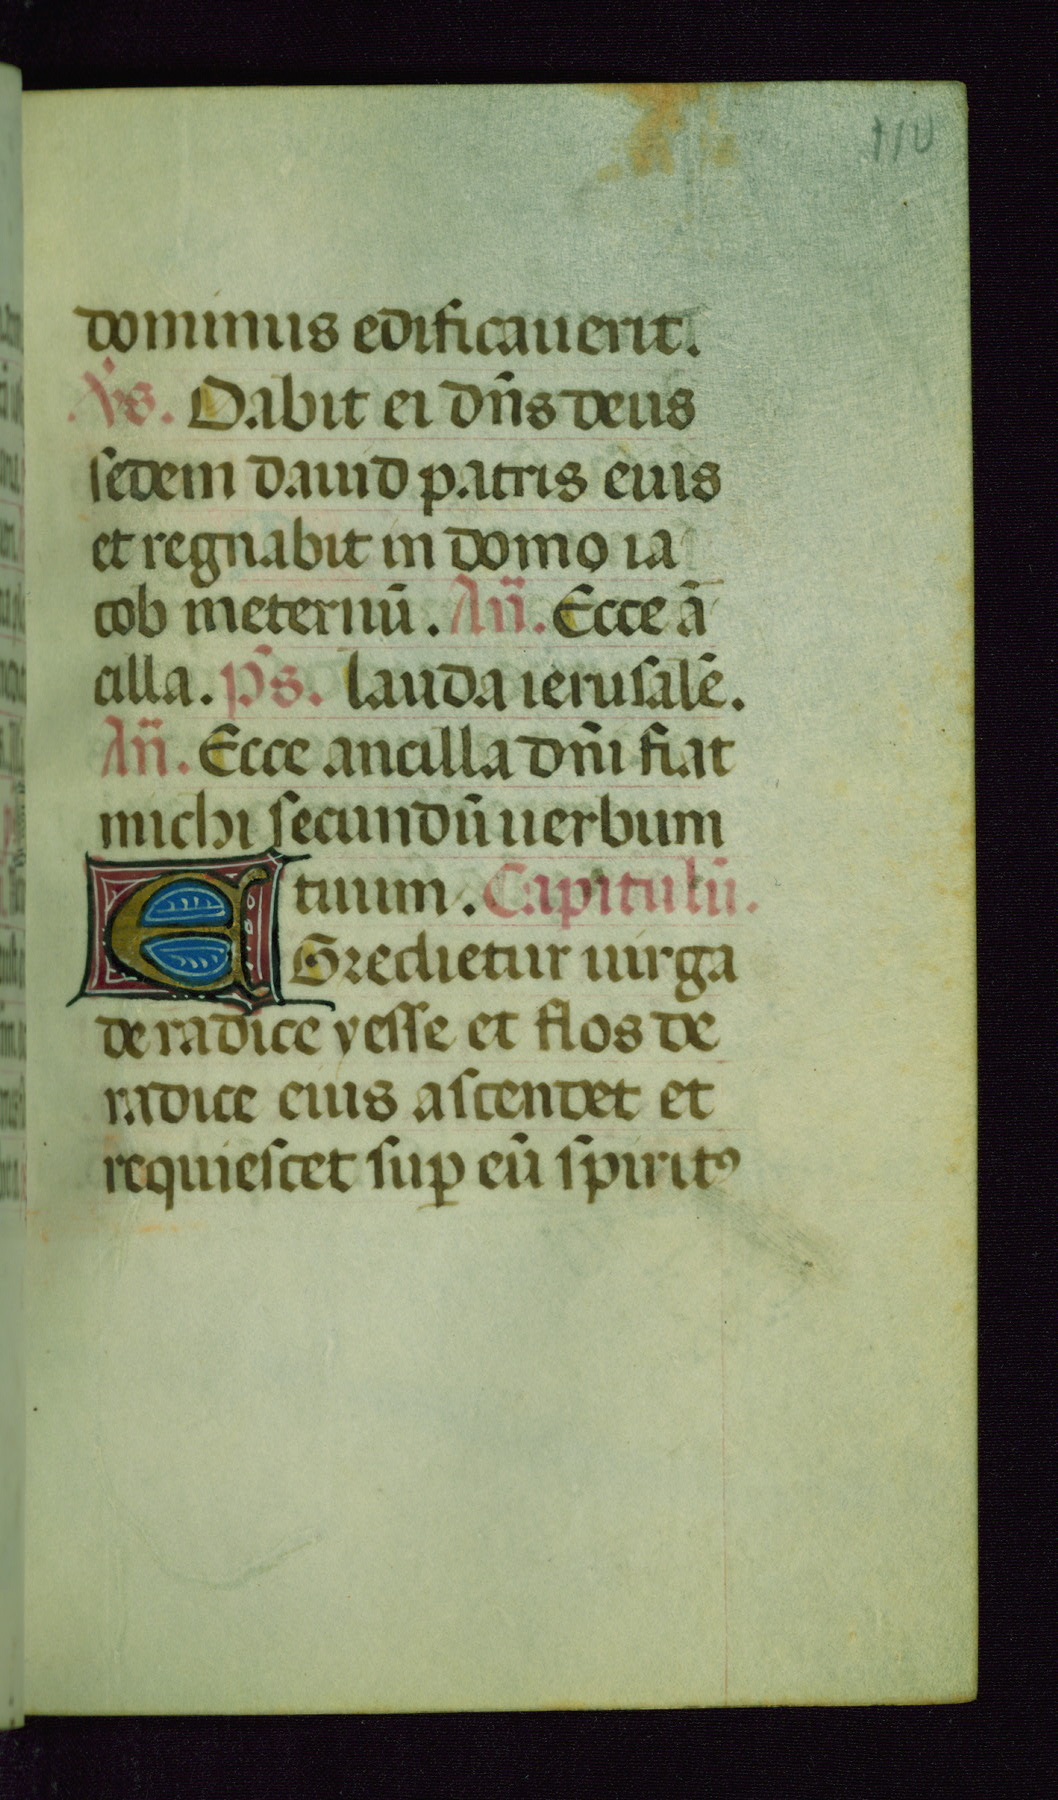 110
dominus edificauerit.
.Vs. Dabit ei dñs deus
sedem dauid patris euis
et regnabit in domo ia
cob ineternū. Añ. Ecce ā
cilla. ps̄. lauda ierusalē.
Añ. Ecce ancilla dñi fiat
michi secundū uerbum
tuum. Capitulū.
EGredietur uirga
de radice yesse et flos de
radice eius ascendet et
requiescet sup eū sp̄iritꝰ